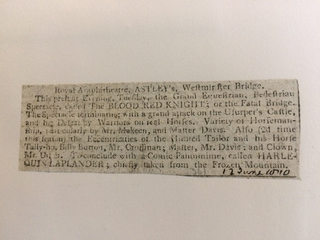 Royal Amphitheatre, ASTLEY's, Westminster Bridge.
This present Evening, Tuesday, the Grand Equestrian, Pedestrian
Spectacle, called The BLOOD RED KNIGHT; or the Fatal Bridge.
The Spectacle terminating with a grand attack on the Usurper's Castle,
and his Defeat by Warriors on real Horses. Variety of Horseman-
ship, particularly by Mr. Makeen, and Master Davis. Also (2d time
this season) the Eccentricities of the Hunted Tailor and his Horse
Tally-ho. Billy Button, Mr. Crossman; Master, Mr. Davis; and Clown,
Mr. To conclude with a Comic Pantomime, called HARLE-
QUIN LAPLANDER; chiefly taken from the Frozen Mountain.
12 June 1810